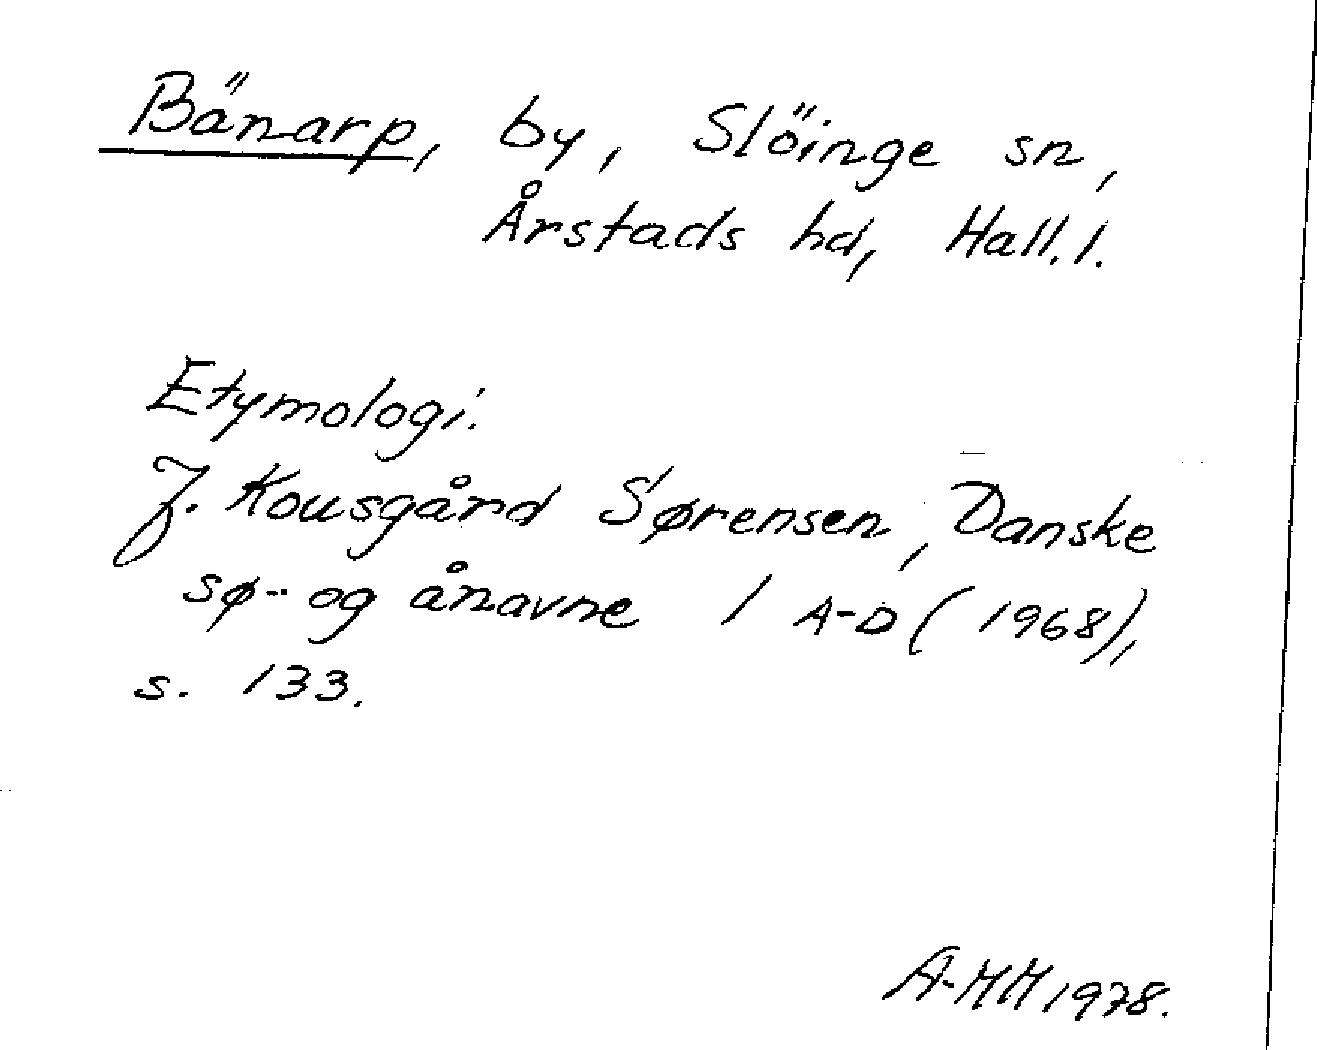 Bänarp, by, Slöinge sn,
Årstads hd, Hall. l.
Etymologi.
J. Kousgård Sørensen, Danske
sø- og ånavne 1 A-D (1968),
s. 133.
A-MM 1978.